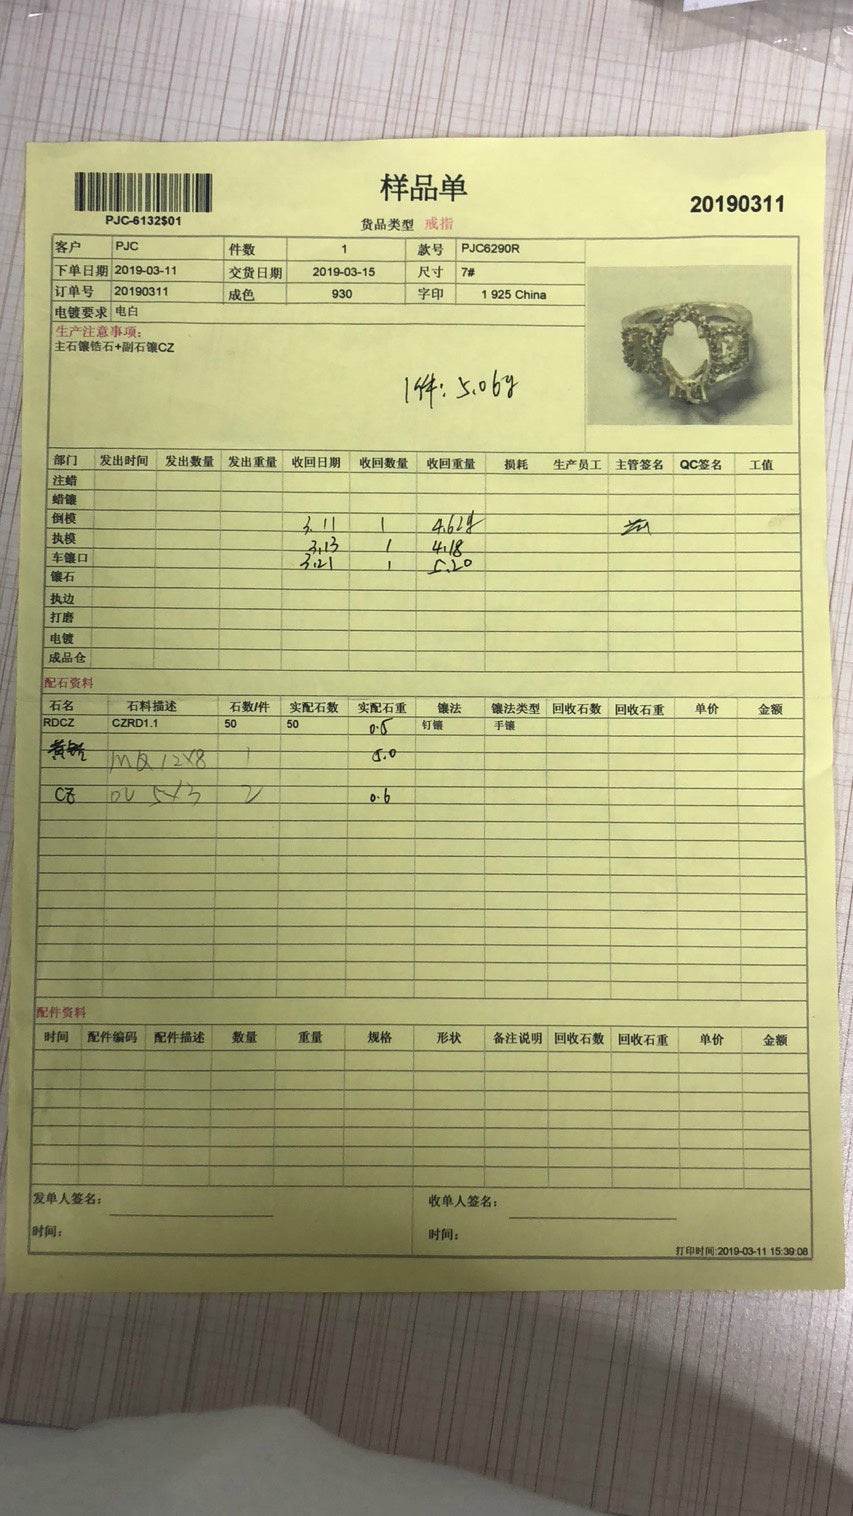 样品单
20190311
PJC-6132$01
货品类型 戒指
客户 PJC 件数 1 款号 PJC6290R
下单日期 2019-03-11 交货日期 2019-03-15 尺寸 7#
订单号 20190311 成色 930 字印 1 925 China
电镀要求 电白
生产注意事项:
主石镶锆石+副石镶CZ
1件: 5.06g
部门 发出时间 发出数量 发出重量 收回日期 收回数量 收回重量 损耗 生产员工 主管签名 QC签名 工值
注蜡
蜡镶
倒模 3.11 1 4.62g
执模 3.13 1 4.18
车镶口 3.21 1 5.20
镶石
执边
打磨
电镀
成品仓
配石资料
石名 石料描述 石数/件 实配石数 实配石重 镶法 镶法类型 回收石数 回收石重 单价 金额
RDCZ CZRD1.1 50 50 0.5 钉镶 手镶
MQ 12x8 1 5.0
CZ OV 5x3 2 0.6
配件资料
时间 配件编码 配件描述 数量 重量 规格 形状 备注说明 回收石数 回收石重 单价 金额
发单人签名: 收单人签名:
时间: 时间:
打印时间:2019-03-11 15:39:08